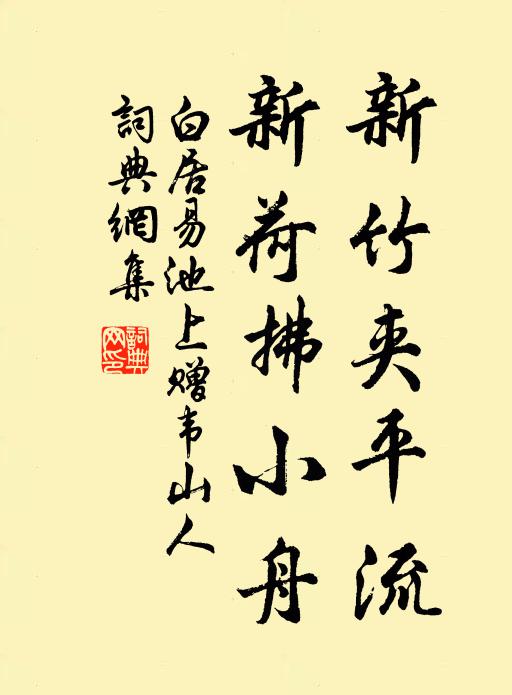 新竹夹平流
新荷拂小舟
白居易池上赠韦山人
詞典網集
詞典
网印